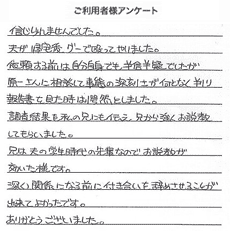 ご利用者様アンケート
信じられませんでした。
夫が帰宅後、グーで殴ってやりました。
依頼する前は自分自身でも半信半疑でしたが
原一さんに相談して事態の深刻さが何となく判り
報告書で見た時は愕然としました。
調査結果を私の兄にも伝え、兄から強くお説教
してもらいました。
兄は夫の学生時代の先輩なのでお説教が
効いた様です。
深い関係になる前に付き合いを辞めさせることが
出来てよかったです。
ありがとうございました。